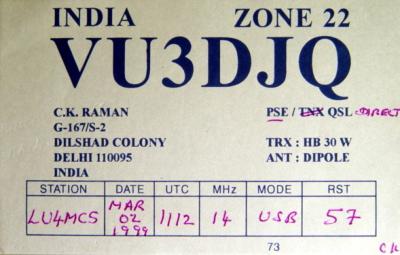 INDIA ZONE 22
VU3DJQ
C.K. RAMAN PSE / TNX QSL DIRECT
G-167/S-2
DILSHAD COLONY TRX : HB 30 W
DELHI 110095 ANT : DIPOLE
INDIA
STATION DATE UTC MHz MODE RST
LU4MCS MAR 02 1999 1112 14 USB 57
73